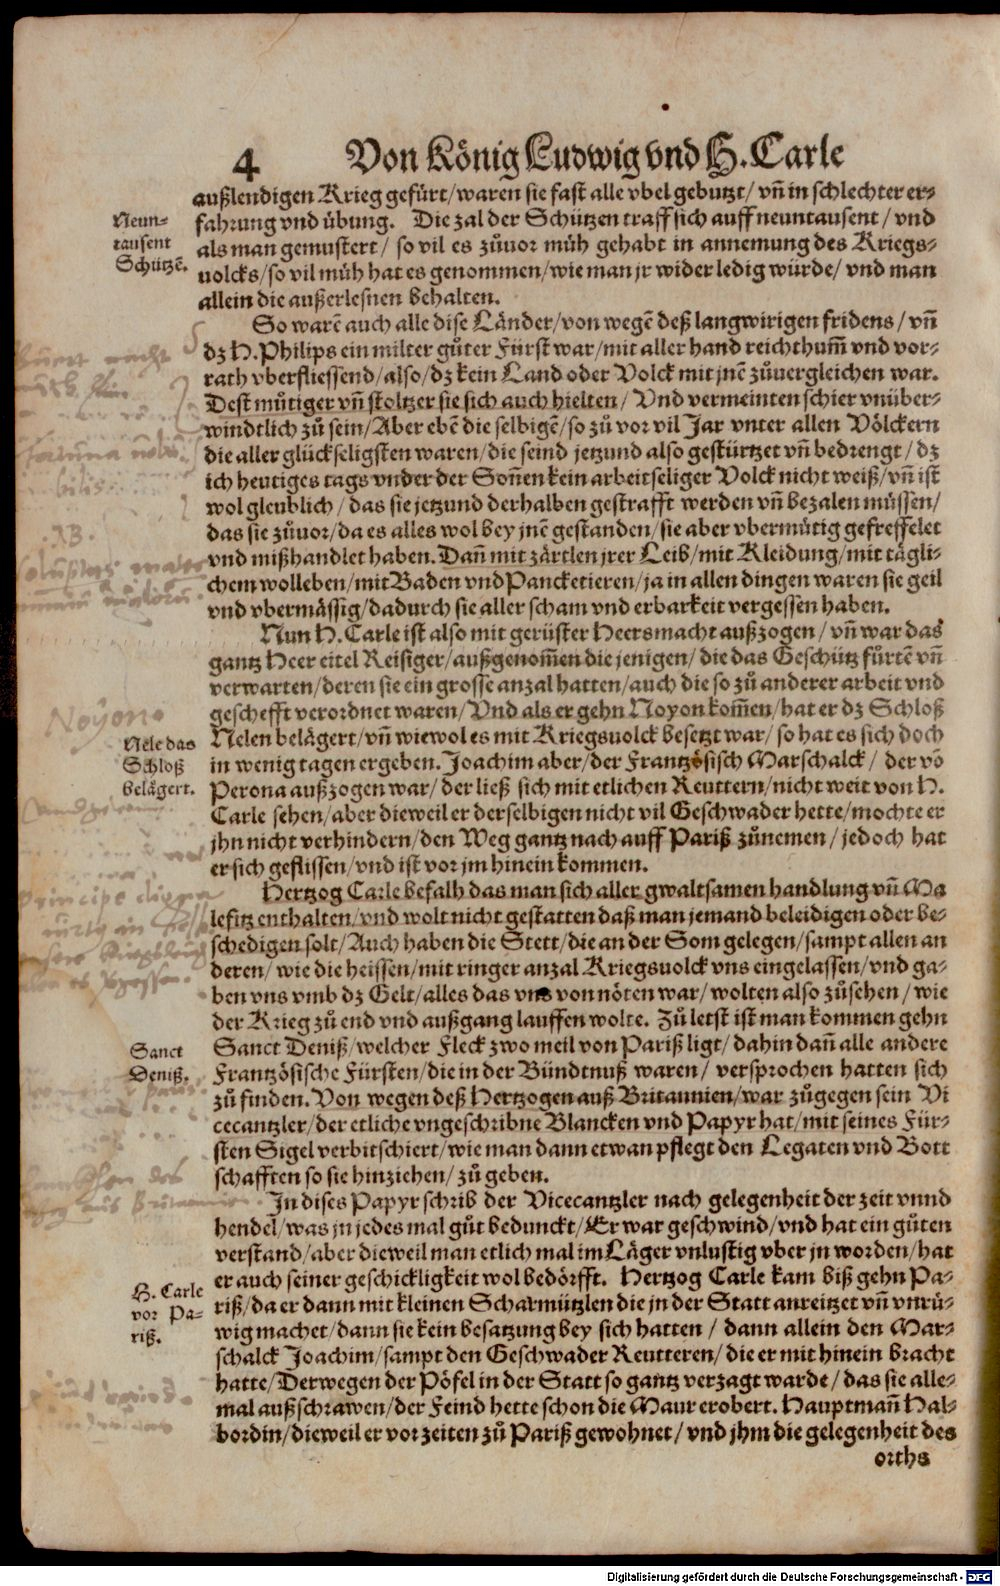 4 Von König Ludwig vnd H. Carle
außlendigen Krieg gefürt/waren sie fast alle vbel gebutzt/ vñ in schlechter er-
Neun-
tausent
Schützẽ.
fahrung vnd übung. Die zal der Schützen traff sich auff neuntausent/ vnd
als man gemustert/ so vil es zůuor müh gehabt in annemung des Kriegs-
uolcks/so vil müh hat es genommen/wie man jr wider ledig würde/ vnd man
allein die außerlesnen behalten.
So warẽ auch alle dise Länder/von wegẽ deß langwirigen fridens/ vñ
dz H. Philips ein milter gůter Fürst war/mit aller hand reichthum̃ vnd vor-
rath vberfliessend/also/dz kein Land oder Volck mit jnẽ zůuergleichen war.
Dest můtiger vñ stoltzer sie sich auch hielten/ Vnd vermeinten schier vnüber-
windtlich zů sein/Aber ebẽ die selbigẽ/so zů vor vil Jar vnter allen Völckern
die aller glückseligsten waren/die seind jetzund also gestürtzet vñ bedrengt/ dz
ich heutiges tags vnder der Soñen kein arbeitseliger Volck nicht weiß/vñ ist
wol gleublich/ das sie jetzund derhalben gestrafft werden vñ bezalen müssen/
das sie zůuor/da es alles wol bey jnẽ gestanden/sie aber vbermütig gefreffelet
vnd mißhandlet haben. Dañ mit zärtlen jrer Leib/mit Kleidung/mit tägli-
chem wolleben/mit Baden vnd Pancketieren/ja in allen dingen waren sie geil
vnd vbermässig/dadurch sie aller scham vnd erbarkeit vergessen haben.
Nun H. Carle ist also mit gerüster Heersmacht außzogen/ vñ war das
gantz Heer eitel Reisiger/außgenom̃en die jenigen/ die das Geschütz fürtẽ vñ
verwarten/deren sie ein grosse anzal hatten/auch die so zů anderer arbeit vnd
geschefft verordnet waren/Vnd als er gehn Noyon kom̃en/hat er dz Schloß
Noyone
Nele das
Schloß
belägert.
Nelen belägert/vñ wiewol es mit Kriegsuolck besetzt war/ so hat es sich doch
in wenig tagen ergeben. Joachim aber/der Frantzösisch Marschalck/ der võ
Perona außzogen war/ der ließ sich mit etlichen Reuttern/nicht weit von H.
Carle sehen/aber dieweil er derselbigen nicht vil Geschwader hette/mochte er
jhn nicht verhindern/den Weg gantz nach auff Pariß zůnemen/ jedoch hat
er sich geflissen/vnd ist vor jm hinein kommen.
Hertzog Carle befalh das man sich aller gwaltsamen handlung vñ Ma
lefitz enthalten/vnd wolt nicht gestatten daß man jemand beleidigen oder be-
schedigen solt/Auch haben die Stett/die an der Som gelegen/sampt allen an
deren/ wie die heissen/mit ringer anzal Kriegsuolck vns eingelassen/vnd ga-
ben vns vmb dz Gelt/alles das vns von nöten war/wolten also zůsehen/ wie
der Krieg zů end vnd außgang lauffen wolte. Zů letst ist man kommen gehn
Sanct
Deniß.
Sanct Deniß/welcher Fleck zwo meil von Pariß ligt/ dahin dañ alle andere
Frantzösische Fürsten/die in der Bündtnuß waren/ versprochen hatten sich
zů finden. Von wegen deß Hertzogen auß Britannien/war zůgegen sein Vi
cecantzler/der etliche vngeschribne Blancken vnd Papyr hat/mit seines Für-
sten Sigel verbitschiert/wie man dann etwan pflegt den Legaten vnd Bott
schafften so sie hinziehen/ zů geben.
In dises Papyr schrib der Vicecantzler nach gelegenheit der zeit vnnd
hendel/was jn jedes mal gůt bedunckt/Er war geschwind/vnd hat ein gůten
verstand/aber dieweil man etlich mal im Läger vnlustig vber jn worden/hat
H. Carle
vor Pa-
riß.
er auch seiner geschickligkeit wol bedörfft. Hertzog Carle kam biß gehn Pa-
riß/da er dann mit kleinen Scharmützlen die jn der Statt anreitzet vñ vnrů-
wig machet/dann sie kein besatzung bey sich hatten/ dann allein den Mar-
schalck Joachim/sampt den Geschwader Reutteren/die er mit hinein bracht
hatte/Derwegen der Pöfel in der Statt so gantz verzagt warde/das sie alle-
mal außschrawen/der Feind hette schon die Maur erobert. Hauptmañ Hal-
bordin/dieweil er vor zeiten zů Pariß gewohnet/vnd jhm die gelegenheit des
orths
Digitalisierung gefördert durch die Deutsche Forschungsgemeinschaft - DFG